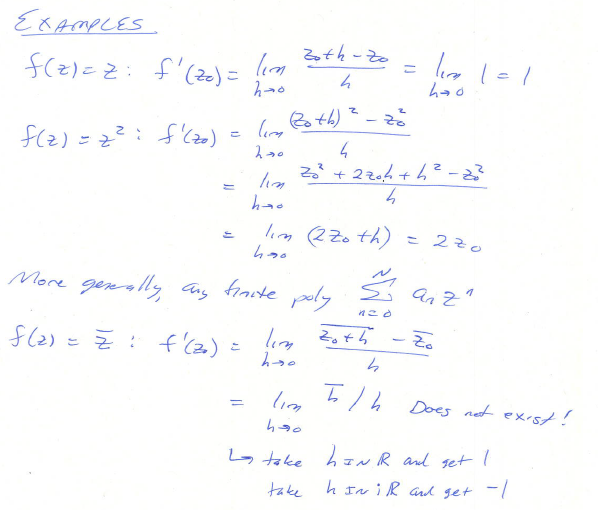 EXAMPLES
f(z) = z : f'(z₀) = lim_{h→0} (z₀+h - z₀)/h = lim_{h→0} 1 = 1
f(z) = z² : f'(z₀) = lim_{h→0} ((z₀+h)² - z₀²)/h
= lim_{h→0} (z₀² + 2z₀h + h² - z₀²)/h
= lim_{h→0} (2z₀ + h) = 2z₀
More generally, any finite poly ∑_{n=0}^{N} aₙ zⁿ
f(z) = z̅ : f'(z₀) = lim_{h→0} (\overline{z₀+h} - \overline{z₀})/h
= lim_{h→0} h̅ / h Does not exist!
↳ take h IN ℝ and get 1
take h IN iℝ and get -1